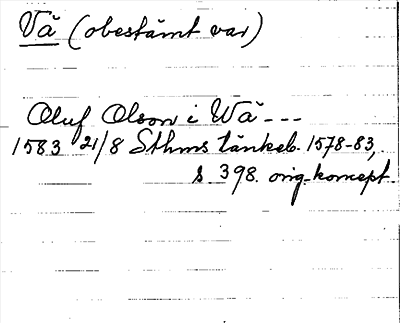 Vä (obestämt var)
Oluf Olson i Wä - - -
1583 21/8 Sthms tänkeb. 1578-83,
s. 398. orig.-koncept.